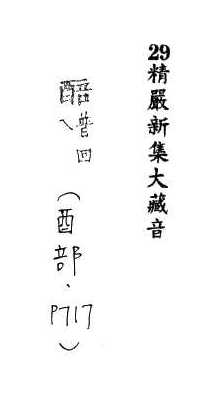 29精嚴新集大藏音
醅普回(酉部、P717)